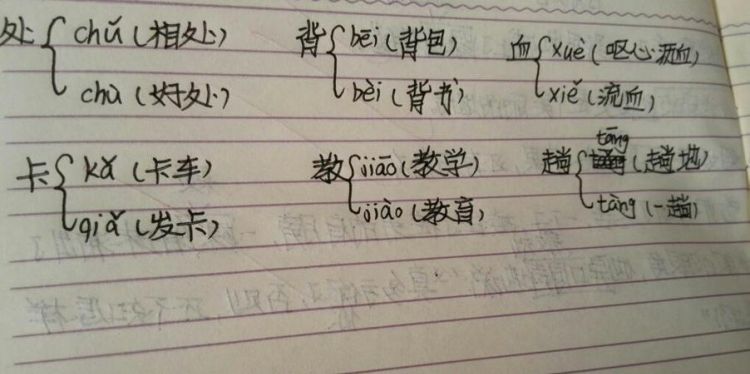 处 { chǔ (相处) 背 { bēi (背包) 血 { xuè (呕心沥血)
chù (好处) bèi (背书) xiě (流血)
卡 { kǎ (卡车) 教 { jiāo (教学) 趟 { tāng (趟地)
qiǎ (发卡) jiào (教育) tàng (一趟)